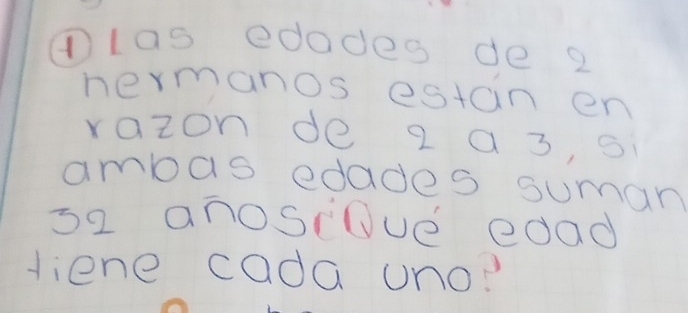 ① Las edades de 2
hermanos están en
razón de 2 a 3, si
ambas edades suman
32 años ¿Qué edad
tiene cada uno?